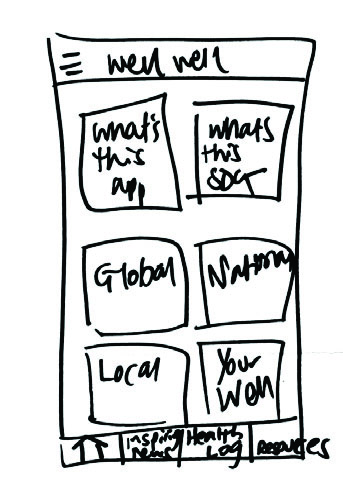 well well
what's
this
app
whats
this
SDG
Global
National
Local
Your
Well
inspiring
news
Health
Log
Resources